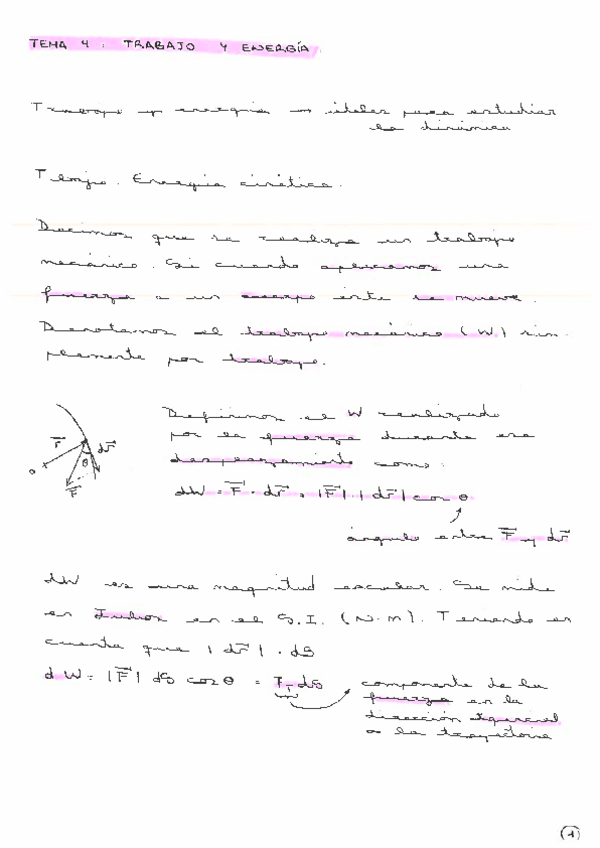 TEMA 4 : TRABAJO Y ENERGÍA.
Trabajo y energía → útiles para estudiar
la dinámica
Energía cinética.
Decimos que se realiza un trabajo
mecánico. Si cuando aplicamos una
fuerza a un cuerpo éste se mueve.
Denotamos el trabajo mecánico (W) sim-
plemente por trabajo.
Definimos el W realizado
por la fuerza durante ese
desplazamiento como:
dW = F⃗ · dr⃗ = |F⃗| |dr⃗| cos θ
ángulo entre F⃗ y dr⃗
r⃗
dr⃗
θ
o
F⃗
dW es una magnitud escalar. Se mide
en Julios en el S.I. (N·m). Teniendo en
cuenta que |dr⃗| = dS
dW = |F⃗| dS cos θ = F_T dS
componente de la
fuerza en la
dirección tangencial
a la trayectoria
1